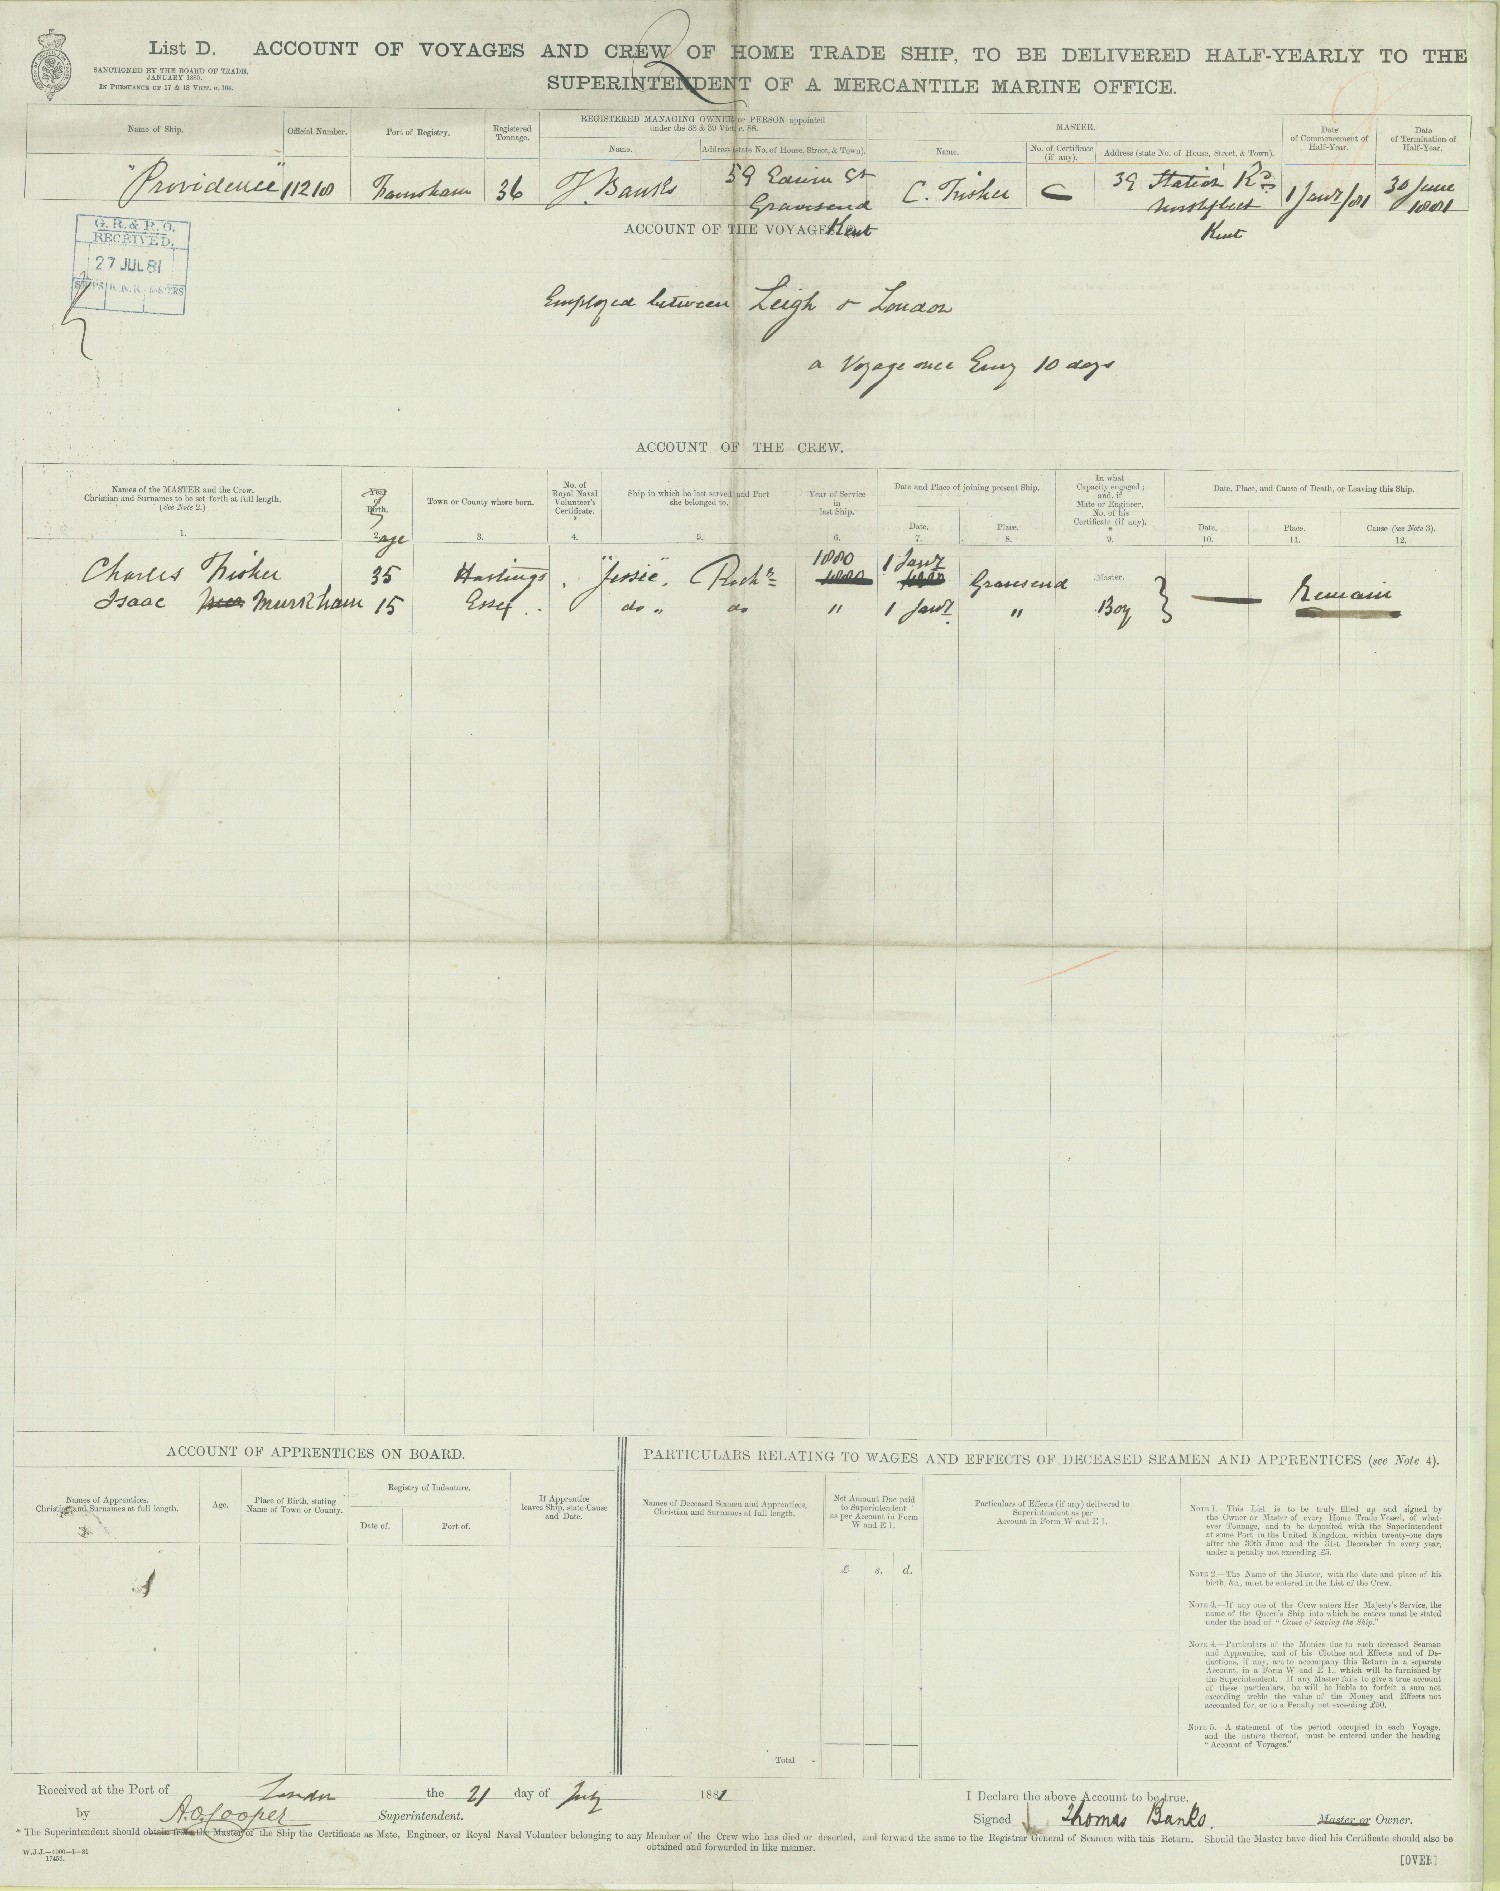 List D. ACCOUNT OF VOYAGES AND CREW OF HOME TRADE SHIP, TO BE DELIVERED HALF-YEARLY TO THE
SUPERINTENDENT OF A MERCANTILE MARINE OFFICE.
SANCTIONED BY THE BOARD OF TRADE,
JANUARY 1880.
IN PURSUANCE OF 17 & 18 VICT. c. 104.
Name of Ship.
Official Number.
Port of Registry.
Registered Tonnage.
REGISTERED MANAGING OWNER or PERSON appointed
under the 38 & 39 Vict. c. 88.
Name.
Address (state No. of House, Street, & Town).
MASTER.
Name.
No. of Certificate (if any).
Address (state No. of House, Street, & Town).
Date of Commencement of Half-Year.
Date of Termination of Half-Year.
"Providence" 36 T. Banks 59 Edwin St Gravesend Kent
39 Station Rd Northfleet Kent
1 Jany/81
30 June 1881
G. R. & R. O.
RECEIVED.
27 JUL 81
ACCOUNT OF THE VOYAGES
Employed between Leigh & London
a Voyage once Every 10 days
ACCOUNT OF THE CREW.
Names of the MASTER and the Crew.
Christian and Surnames to be set forth at full length.
(See Note 2.)
1.
Year of Birth.
2.
age
Town or County where born.
3.
No. of Royal Naval Volunteer's Certificate.
*
4.
Ship in which he last served and Port she belonged to.
5.
Year of Service in last Ship.
6.
Date and Place of joining present Ship.
Date.
7.
Place.
8.
In what Capacity engaged; and, if Mate or Engineer, No. of his Certificate (if any).
*
9.
Date, Place, and Cause of Death, or Leaving this Ship.
Date.
10.
Place.
11.
Cause (see Note 3).
12.
Charles 35 Hastings "Jessie" Rochr 1880 1 Jany Gravesend Master.
Isaac Murkham 15 Essex do " do " 1 Jany " Boy
Remain
ACCOUNT OF APPRENTICES ON BOARD.
Names of Apprentices.
Christian and Surnames at full length.
Age.
Place of Birth, stating
Name of Town or County.
Registry of Indenture.
Date of.
Port of.
If Apprentice
leaves Ship, state Cause
and Date.
PARTICULARS RELATING TO WAGES AND EFFECTS OF DECEASED SEAMEN AND APPRENTICES (see Note 4).
Names of Deceased Seamen and Apprentices,
Christian and Surnames at full length.
Net Amount Due paid
to Superintendent
as per Account in Form
W and E 1.
£ s. d.
Total -
Particulars of Effects (if any) delivered to
Superintendent as per
Account in Form W and E 1.
NOTE 1. This List is to be truly filled up and signed by
the Owner or Master of every Home Trade Vessel, of what-
ever Tonnage, and to be deposited with the Superintendent
at some Port in the United Kingdom, within twenty-one days
after the 30th June and the 31st December in every year,
under a penalty not exceeding £5.
NOTE 2.—The Name of the Master, with the date and place of his
birth, &c., must be entered in the List of the Crew.
NOTE 3.—If any one of the Crew enters Her Majesty's Service, the
name of the Queen's Ship into which he enters must be stated
under the head of "Cause of leaving the Ship."
NOTE 4.—Particulars of the Monies due to each deceased Seaman
and Apprentice, and of his Clothes and Effects and of De-
ductions, if any, are to accompany this Return in a separate
Account, in a Form W and E 1., which will be furnished by
the Superintendent. If any Master fails to give a true account
of these particulars, he will be liable to forfeit a sum not
exceeding treble the value of the Money and Effects not
accounted for, or to a Penalty not exceeding £50.
NOTE 5. A statement of the period occupied in each Voyage,
and the nature thereof, must be entered under the heading
"Account of Voyages."
Received at the Port of London the 21 day of July 1881
by A. O. Cooper Superintendent.
I Declare the above Account to be true.
Signed Thomas Banks. Master or Owner.
* The Superintendent should obtain from the Master of the Ship the Certificate as Mate, Engineer, or Royal Naval Volunteer belonging to any Member of the Crew who has died or deserted, and forward the same to the Registrar General of Seamen with this Return. Should the Master have died his Certificate should also be
obtained and forwarded in like manner.
[OVER]